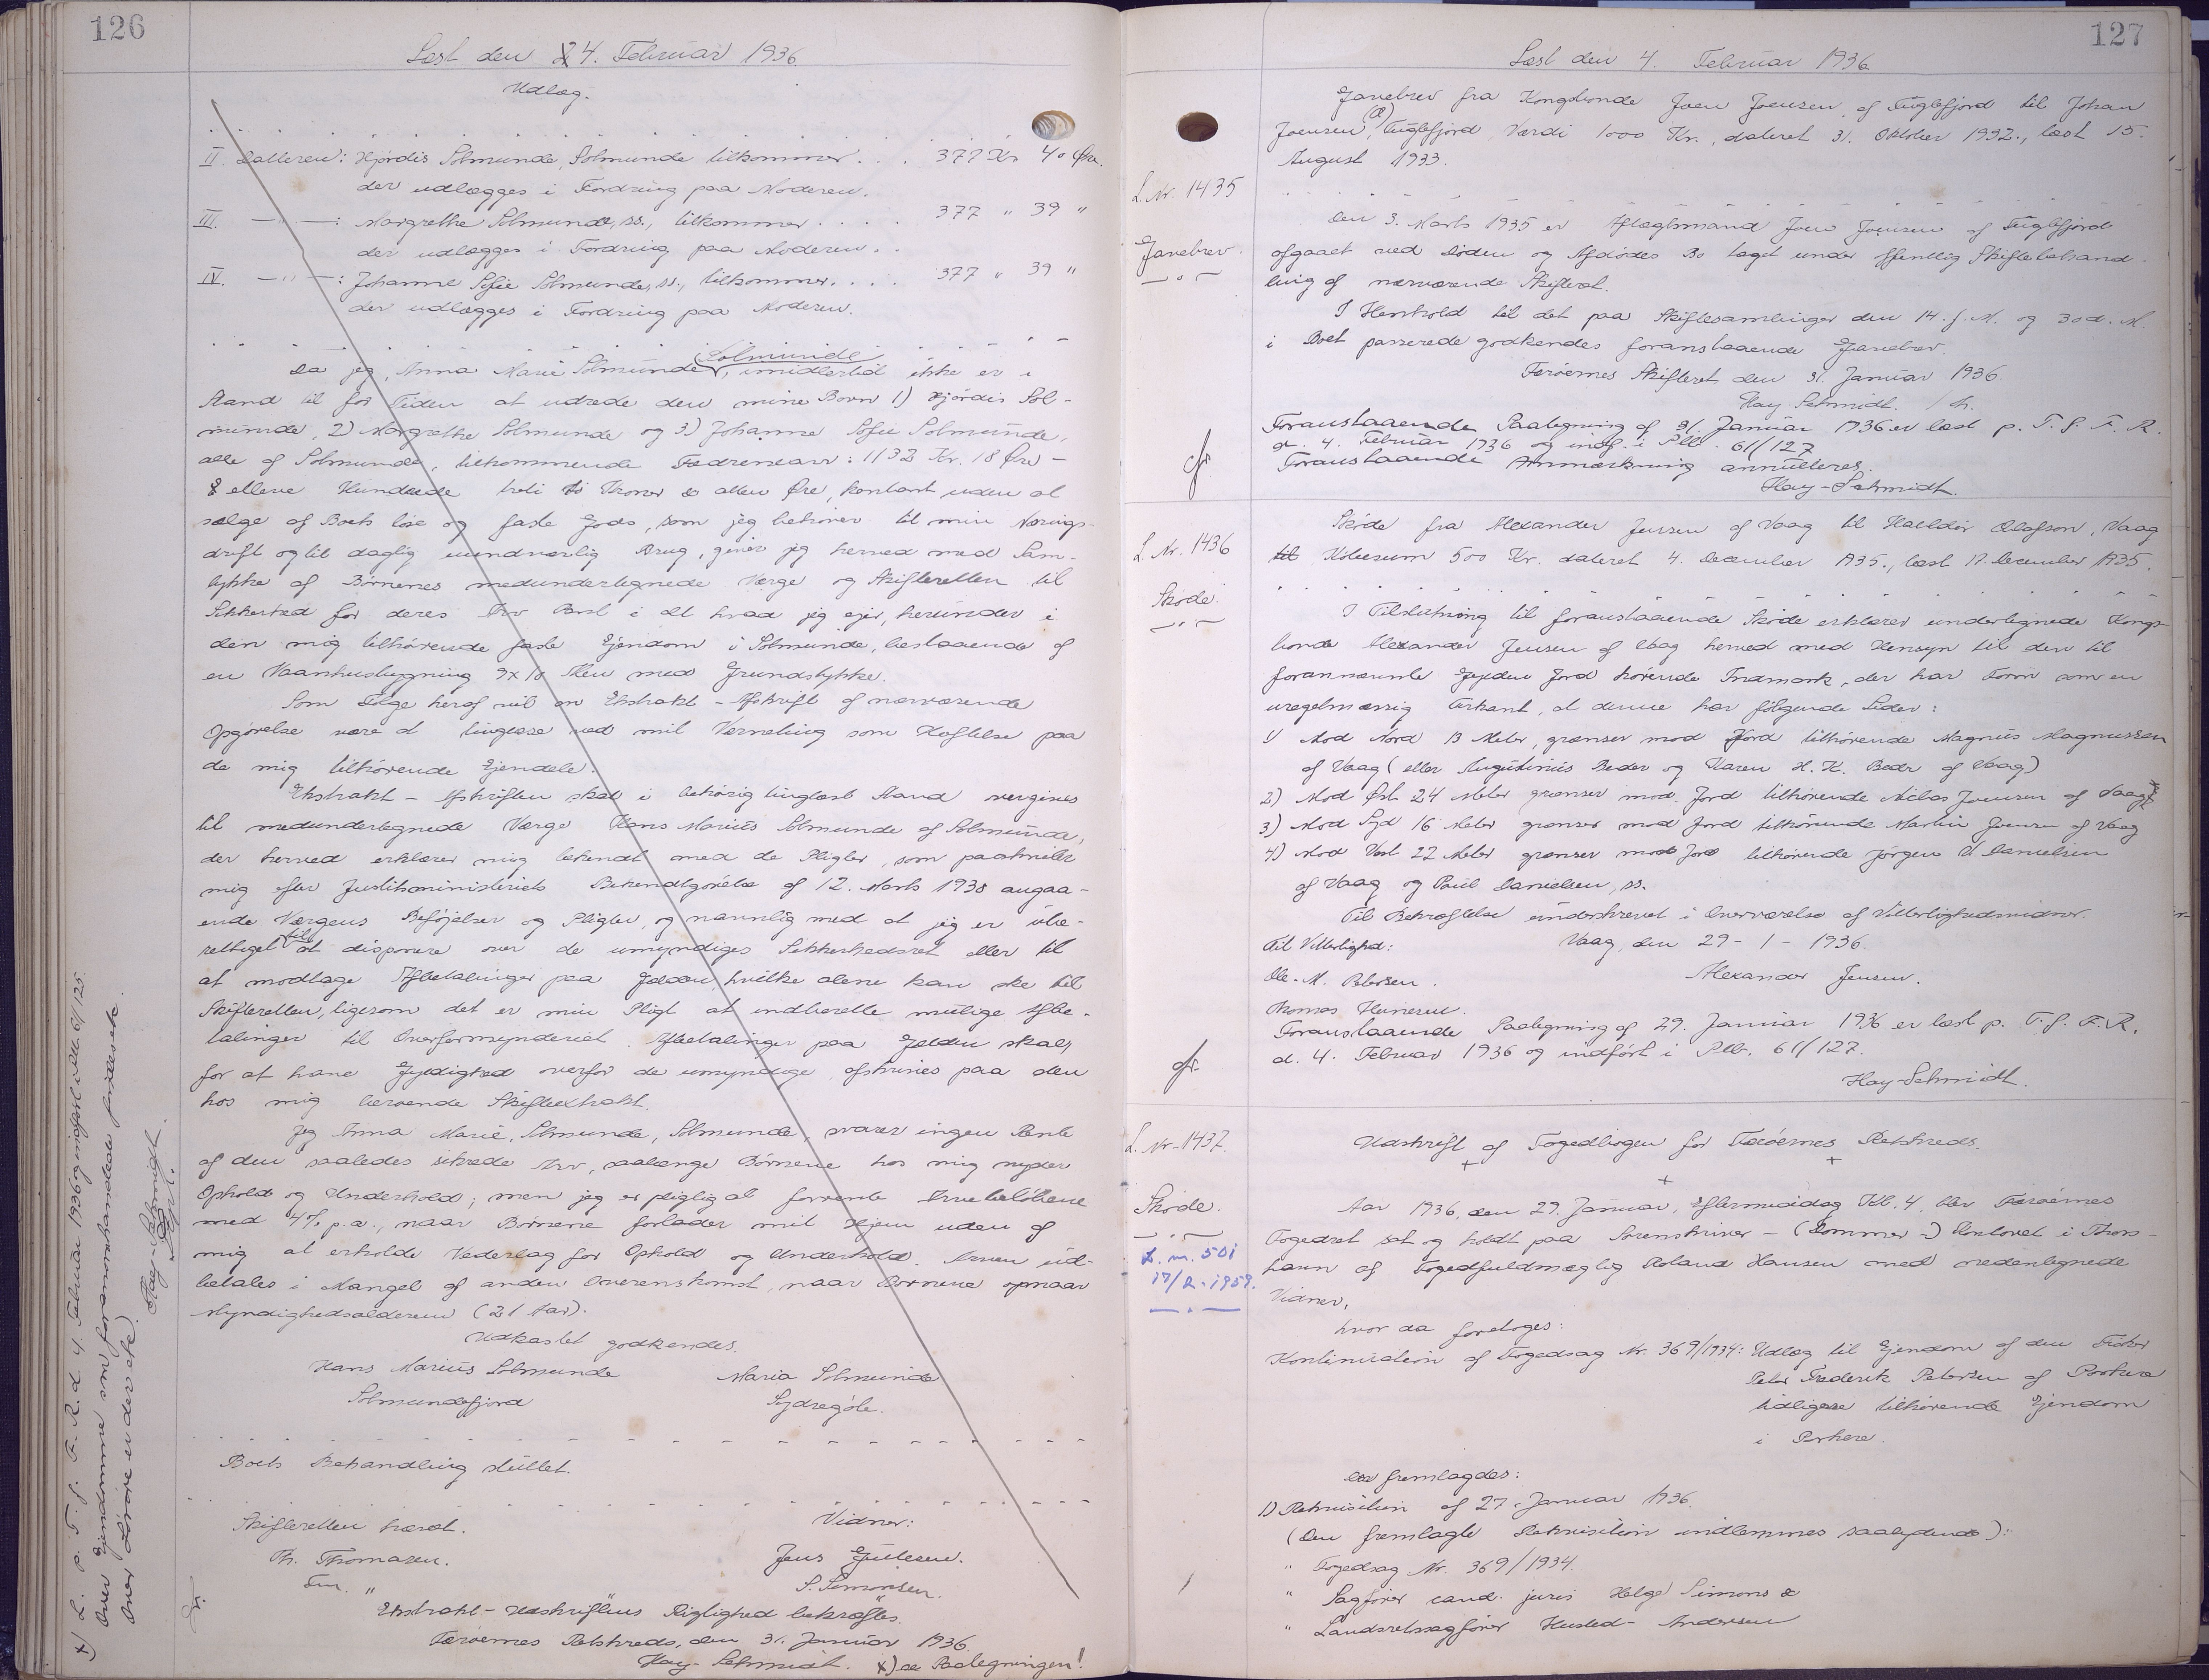 126
Læst den 4. Februar 1936.
Udlæg.
II. Datteren: Hjördis Solmunde, Solmunde tilkommer . . 377 Kr 40 Øre.
der udlægges i Fordring paa Moderen.
III. — " — : Margrethe Solmunde, ss., tilkommer . . . . 377 " 39 "
der udlægges i Fordring paa Moderen. .
IV. — " — : Johanne Sofie Solmunde, ss., tilkommer. . . . 377 " 39 "
der udlægges i Fordring paa Moderen.
Solmunde
Da jeg, Anna Marie Solmunde, imidlertid ikke er i
Stand til for Tiden at udrede den mine Børn 1) Hjördis Sol-
munde, 2) Margrethe Solmunde og 3) Johanne Sofie Solmunde,
alle af Solmunde, tilkommende Fædrenearv: 1132 Kr. 18 Øre -
elleve Hundrede treti to Kroner & atten Øre, kontant uden at
sælge af Boets løse og faste Gods, som jeg behøver til min Nærings-
drift og til daglig uundværlig Brug, giver jeg herved med Sam-
tykke af Børnenes medundertegnede Værge og Skifteretten til
Sikkerhed for deres Arv Pant i alt hvad jeg ejer, herunder i
den mig tilhørende faste Ejendom i Solmunde, bestaaende af
en Vaanhusbygning 9x10 Alen med Grundstykke.
Som Følge heraf vil en Ekstrakt - Afskrift af nærværende
Opgørelse være at tinglæse ved mit Værneting som Hæftelse paa
de mig tilhørende Ejendele.
Ekstrakt - Afskriften skal i behørig tinglæst Stand overgives
til medundertegnede Værge Hans Marius Solmunde af Solmunde,
der herved erklærer mig bekendt med de Pligter, som paahviler
mig efter Justitsministeriets Bekendtgørelse af 12. Marts 1938 angaa-
ende Værgens Beføjelser og Pligter, og navnlig med at jeg er ube-
rettiget til at disponere over de umyndiges Sikkerhedsret eller til
at modtage Afbetalinger paa Gælden, hvilke alene kan ske til
Skifteretten, ligesom det er min Pligt at indberette mulige Afbe-
talinger til Overformynderiet. Afbetalinger paa Gælden skal,
for at have Gyldighed overfor de umyndige, afskrives paa den
hos mig beroende Skifteextrakt.
Jeg Anna Marie, Solmunde, Solmunde, svarer ingen Rente
af den saaledes sikrede Arv, saalænge Børnene hos mig nyder
Ophold og Underhold; men jeg er pligtig at forrente Arvebeløbene
med 4% p.a., naar Børnene forlader mit Hjem uden af
mig at erholde Vederlag for Ophold og Underhold. Arven ud-
betales i Mangel af anden Overenskomst, naar Børnene opnaar
Myndighedsalderen (21 Aar).
Udkastet godkendes.
Hans Marius Solmunde Maria Solmunde
Solmundefjord Sydregøte.
Boets Behandling sluttet.
Skifteretten hævet. Vidner:
Th. Thomasen. Jens
Fm. " S. Simonsen.
Ekstrakt - Udskriftens Rigtighed bekræftes.
Færøernes Retskreds, den 31. Januar 1936.
Hay-Schmidt. x) se Paategningen!
x) L. p. T. f. F. R. d. 4. Februar 1936 og indført i Plb. 61/125.
Over Ejendomme som foranomhandlede findes ete.
Over Løsøre er der ete.)
Hay-Schmidt.
127
Læst den 4. Februar 1936.
L. Nr. 1435
Gavebrev.
Gavebrev fra Kongsbonde Joen Joensen af Fuglefjord til Johan
Joensen, Fuglefjord, Værdi 1000 Kr., dateret 31. Oktober 1932., læst 15.
August 1933.
Den 3. Marts 1935 er Aftægtsmand Joen Joensen af Fuglefjord
afgaaet ved Døden og Afdødes Bo taget under offentlig Skiftebehand-
ling af nærværende Skifteret.
I Henhold til det paa Skiftesamlinger den 14. f. M. og 30 d. M.
i Boet passerede godkendes foranstaaende Gavebrev.
Færøernes Skifteret den 31. Januar 1936.
Hay-Schmidt.
Foranstaaende Paategning af 31. Januar 1936 er læst p. T. f. F. R.
d. 4. Februar 1936 og indf. i Plb. 61/127
Foranstaaende Anmærkning annulleres.
Hay-Schmidt.
L. Nr. 1436
Skøde.
Skøde fra Alexander Jensen af Vaag til Halldor Olafson, Vaag
til Købesum 500 Kr. dateret 4. December 1935., læst 17. December 1935.
I Tilslutning til foranstaaende Skøde erklærer undertegnede Kongs-
bonde Alexander Jensen af Vaag herved med Hensyn til den til
forannævnte Gylden Jord hørende Indmark, der har Form som en
uregelmæssig Firkant, at denne har følgende Sider:
1) Mod Nord 13 Meter, grænser mod Jord tilhørende Magnus Magnussen
af Vaag (eller Augustinus Beder og Karen H. K. Beder af Vaag)
2) Mod Øst 24 Meter grænser mod Jord tilhørende Niclas Joensen af Vaag
3) Mod Syd 16 Meter grænser mod Jord tilhørende Martin Joensen af Vaag
4) Mod Vest 22 Meter grænser mod Jord tilhørende Jørgen U Danielsen
af Vaag og Poul Danielsen, ss.
Til Bekræftelse underskrevet i Overværelse af Vitterlighedsvidner.
Til Vitterlighed: Vaag, den 29 - 1 - 1936.
Ole. M. Petersen. Alexander Jensen.
Thomas
Foranstaaende Paategning af 29. Januar 1936 er læst p. T. f. F. R.
d. 4. Februar 1936 og indført i Plb. 61/127.
Hay-Schmidt.
L. Nr. 1437.
Skøde.
L. nr. 501
17/2. 1959.
Udskrift af Fogedbogen for Færøernes Retskreds.
Aar 1936, den 29. Januar, Eftermiddag Kl. 4, blev Færøernes
Fogedret sat og holdt paa Sorenskriver - (Dommer-) Kontoret i Thors-
havn af Fogedfuldmægtig Roland Hansen med medundertegnede
Vidner,
hvor da foretoges:
Kontinuation af Fogedsag Nr. 369/1934: Udlæg til Ejendom af den Fisker
Peter Frederik Petersen af Porkere
tidligere tilhørende Ejendom
i Porkere.
Der fremlagdes:
1) Rekvisition af 27. Januar 1936.
(Den fremlagte Rekvisition indlemmes saalydende):
" Fogedsag Nr. 369/1934.
" Sagfører cand. juris Helge Simons &
" Landsretssagfører Husted-Andersen